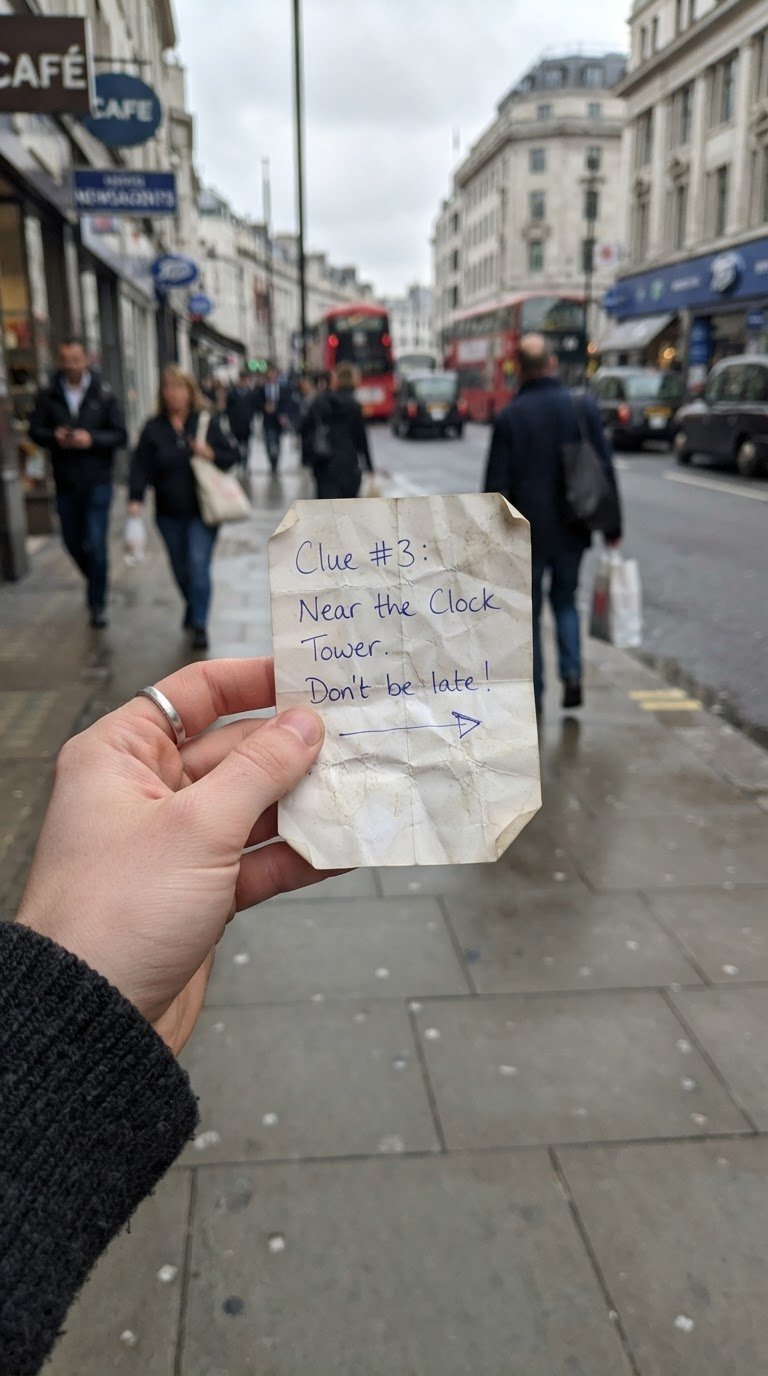 CAFÉ
CAFE
NEWSAGENTS
Boots
Clue #3:
Near the Clock
Tower.
Don't be late!